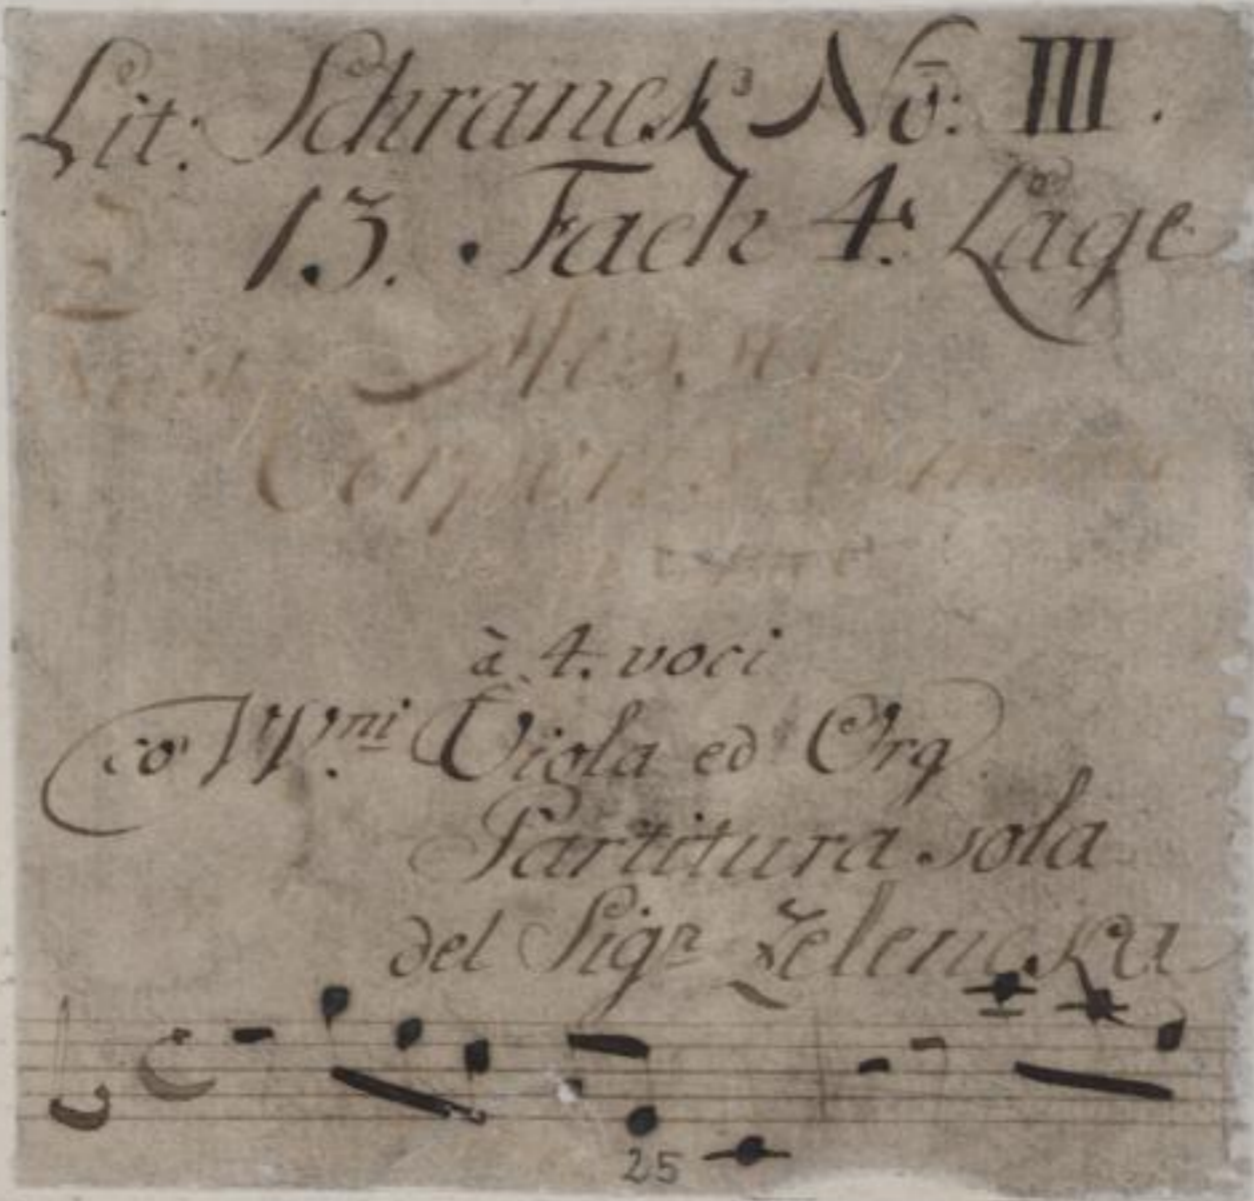 Lit: Schranck No: III.
13. Fach 4. Lage
à 4. voci
co VV.ni Viola ed Org.
Partitura sola
del Sigr Zelencka
25